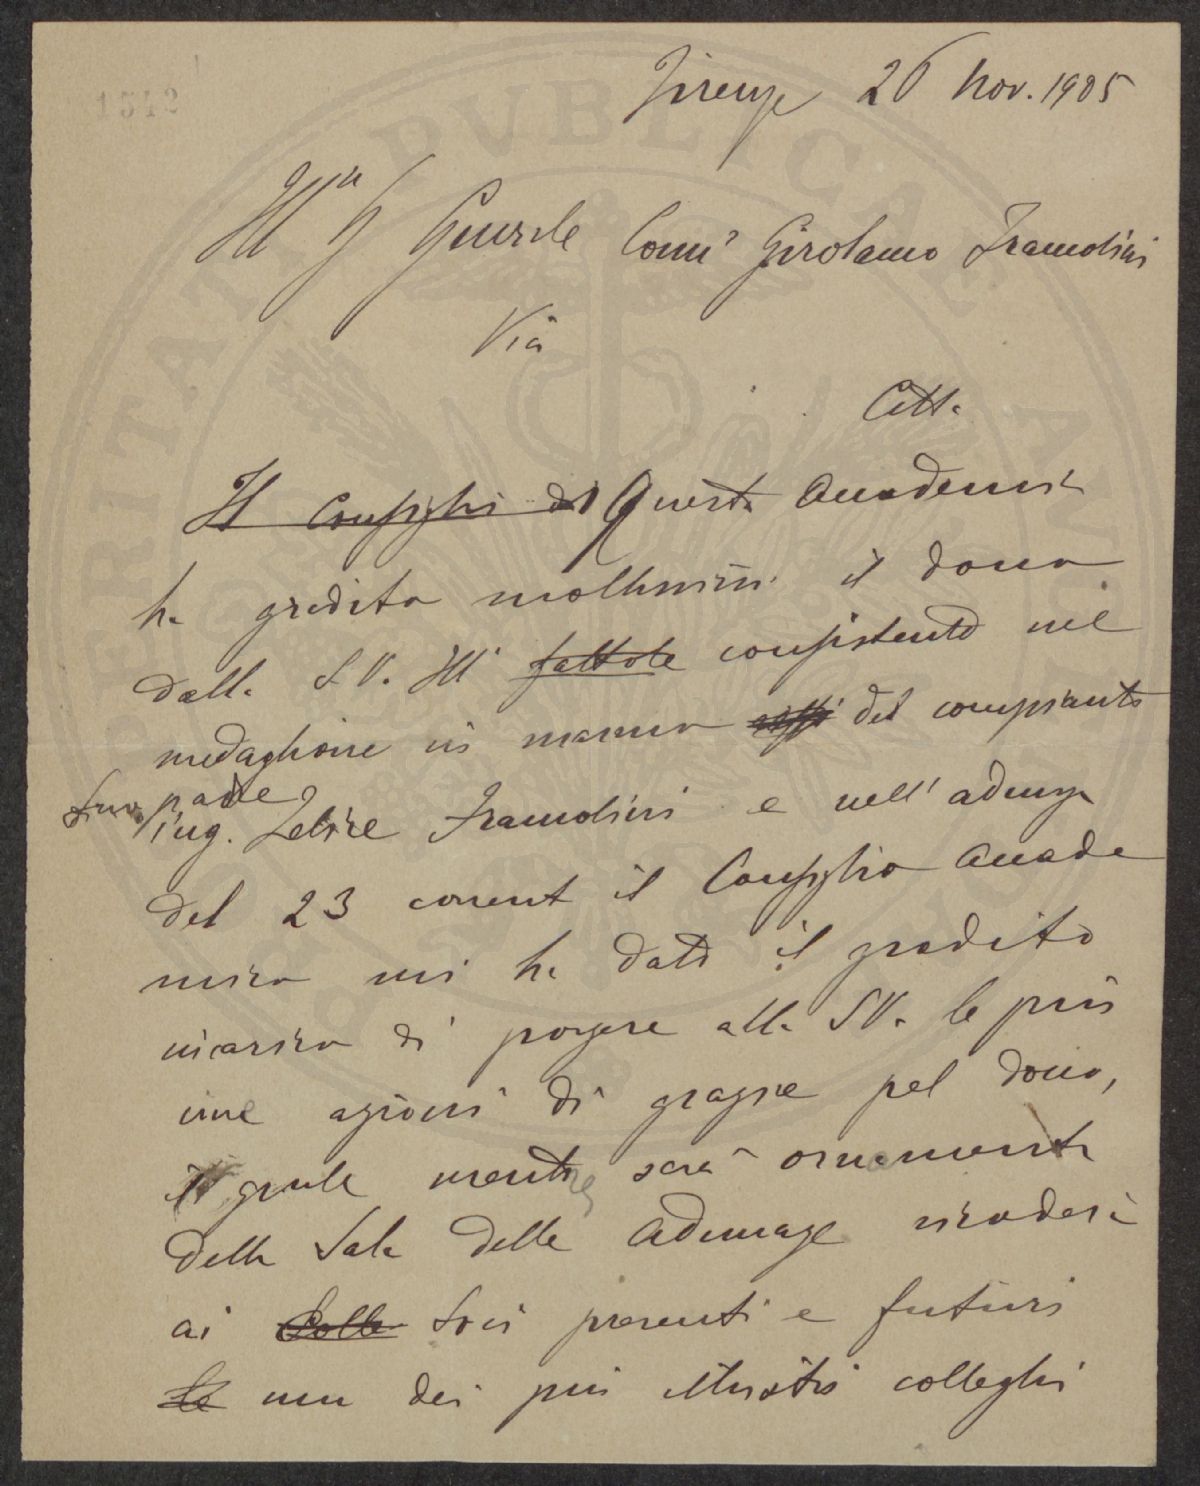 1542
Firenze 26 Nov. 1905
Ill. S. Generale Comm. Girolamo Tramolini
Via
Città
Il Consiglio di Questa Accademia
ha gradito moltissimo il dono
dalla S. V. Ill. fattole consistente nel
medaglione in marmo del compianto
Suo padre
ing. Felice Tramolini e nell'adunza
del 23 corrent il Consiglio Accade
mico mi ha dato il gradito
incarico di porgere alla S. V. le più
vive azioni di grazie pel dono,
il quale mentre sarà ornamento
della Sala delle Adunanze ricorderà
ai Colle Soci presenti e futuri
le uno dei più illustri colleghi